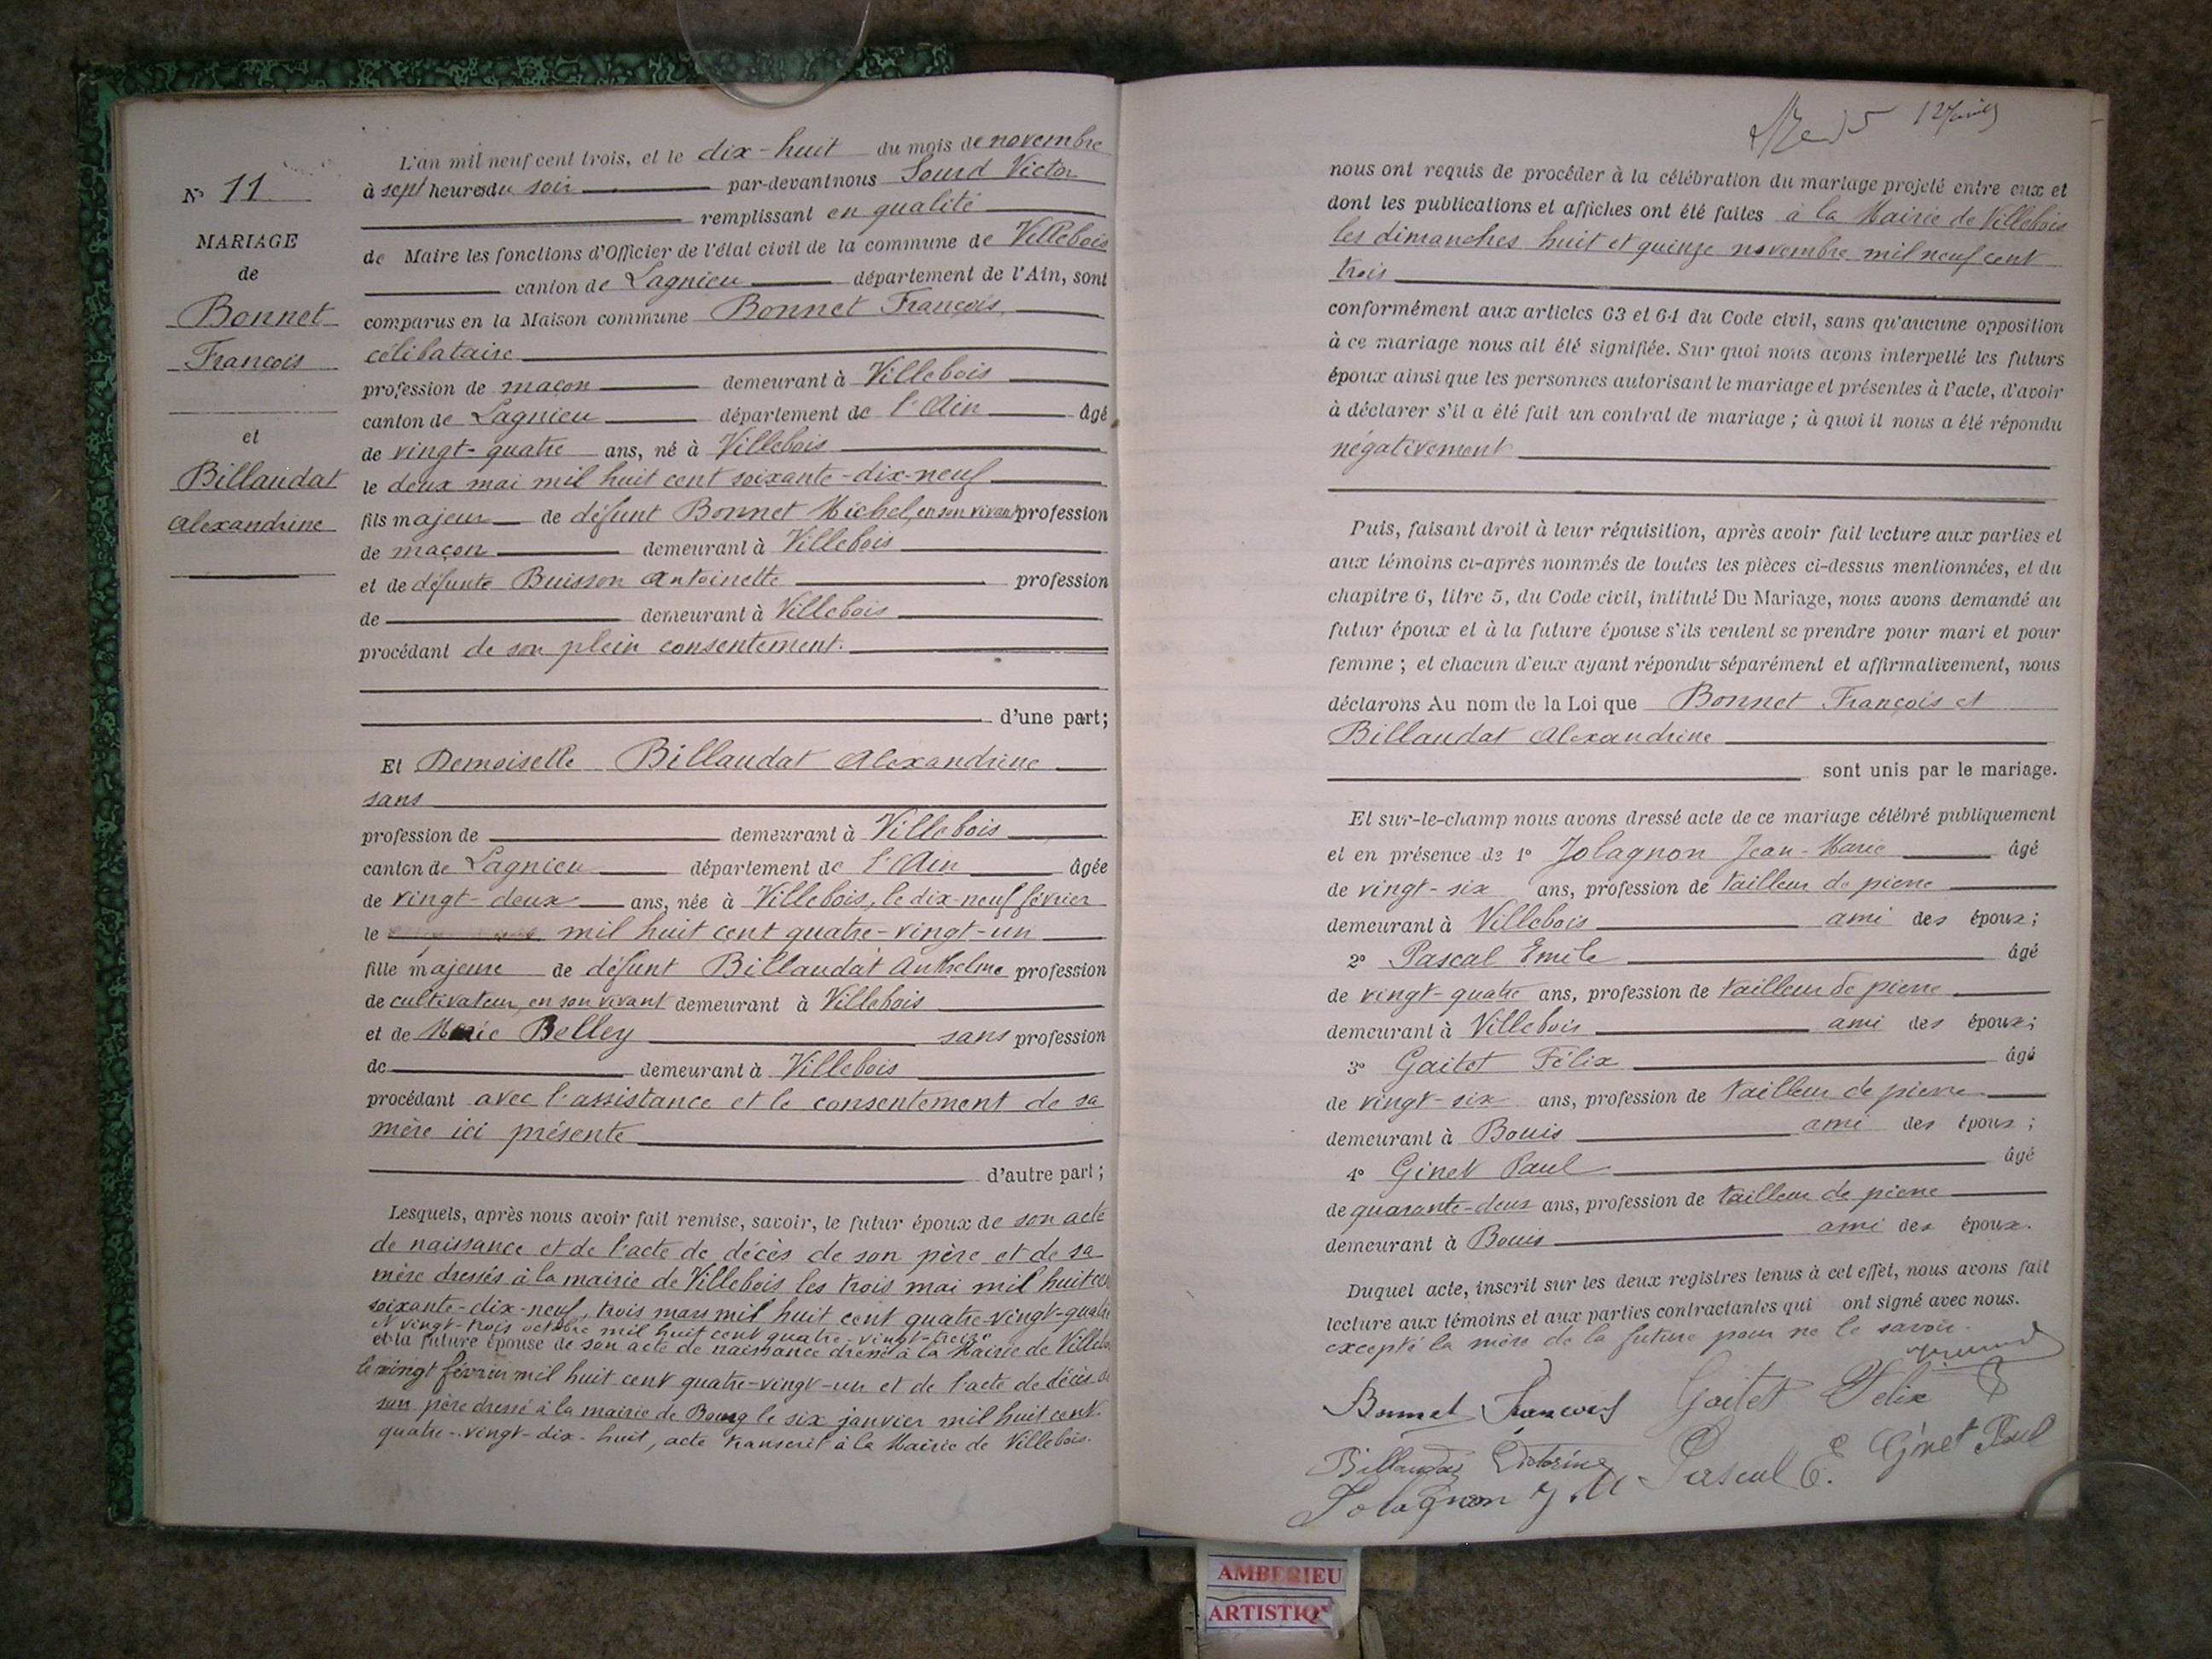 N° 11
MARIAGE
de
Bonnet
François
et
Billaudat
Alexandrine
L'an mil neuf cent trois, et le dix-huit du mois de novembre
à sept heures du soir par-devant nous Sourd Victor
remplissant en qualité
de Maire les fonctions d'Officier de l'état civil de la commune de Villebois
canton de Lagnieu département de l'Ain, sont
comparus en la Maison commune Bonnet François,
célibataire
profession de maçon demeurant à Villebois
canton de Lagnieu département de l'Ain âgé
de vingt-quatre ans, né à Villebois
le deux mai mil huit cent soixante-dix-neuf
fils majeur de défunt Bonnet Michel, en son vivant profession
de maçon demeurant à Villebois
et de défunte Buisson Antoinette profession
de demeurant à Villebois
procédant de son plein consentement.
d'une part;
Et Demoiselle Billaudat Alexandrine
sans
profession de demeurant à Villebois
canton de Lagnieu département de l'Ain âgée
de vingt-deux ans, née à Villebois, le dix-neuf février
le mil huit cent quatre-vingt-un
fille majeure de défunt Billaudat Anthelme profession
de cultivateur, en son vivant demeurant à Villebois
et de Marie Belley sans profession
de demeurant à Villebois
procédant avec l'assistance et le consentement de sa
mère ici présente
d'autre part;
Lesquels, après nous avoir fait remise, savoir, le futur époux de son acte
de naissance et de l'acte de décès de son père et de sa
mère dressés à la mairie de Villebois les trois mai mil huit cent
soixante-dix-neuf, trois mars mil huit cent quatre-vingt-quatre
et vingt-trois octobre mil huit cent quatre-vingt-treize
et la future épouse de son acte de naissance dressé à la Mairie de Villebois
le vingt février mil huit cent quatre-vingt-un et de l'acte de décès de
son père dressé à la mairie de Bourg le six janvier mil huit cent
quatre-vingt-dix-huit, acte transcrit à la Mairie de Villebois.
nous ont requis de procéder à la célébration du mariage projeté entre eux et
dont les publications et affiches ont été faites à la Mairie de Villebois
les dimanches huit et quinze novembre mil neuf cent
trois
conformément aux articles 63 et 64 du Code civil, sans qu'aucune opposition
à ce mariage nous ait été signifiée. Sur quoi nous avons interpellé les futurs
époux ainsi que les personnes autorisant le mariage et présentes à l'acte, d'avoir
à déclarer s'il a été fait un contrat de mariage; à quoi il nous a été répondu
négativement
Puis, faisant droit à leur réquisition, après avoir fait lecture aux parties et
aux témoins ci-après nommés de toutes les pièces ci-dessus mentionnées, et du
chapitre 6, titre 5, du Code civil, intitulé Du Mariage, nous avons demandé au
futur époux et à la future épouse s'ils veulent se prendre pour mari et pour
femme; et chacun d'eux ayant répondu séparément et affirmativement, nous
déclarons Au nom de la Loi que Bonnet François et
Billaudat Alexandrine
sont unis par le mariage.
Et sur-le-champ nous avons dressé acte de ce mariage célébré publiquement
et en présence de 1° Jolagnon Jean-Marie âgé
de vingt-six ans, profession de tailleur de pierre
demeurant à Villebois ami des époux;
2° Pascal Emile âgé
de vingt-quatre ans, profession de tailleur de pierre
demeurant à Villebois ami des époux;
3° Gaitet Félix âgé
de vingt-six ans, profession de tailleur de pierre
demeurant à Bouis ami des époux;
4° Ginet Paul âgé
de quarante-deux ans, profession de tailleur de pierre
demeurant à Bouis ami des époux.
Duquel acte, inscrit sur les deux registres tenus à cet effet, nous avons fait
lecture aux témoins et aux parties contractantes qui ont signé avec nous.
excepté la mère de la future pour ne le savoir.
Bonnet François Gaitet Félix
Billaudat Pascal E. Ginet Paul
Jolagnon J M
AMBERIEU
ARTISTIQ